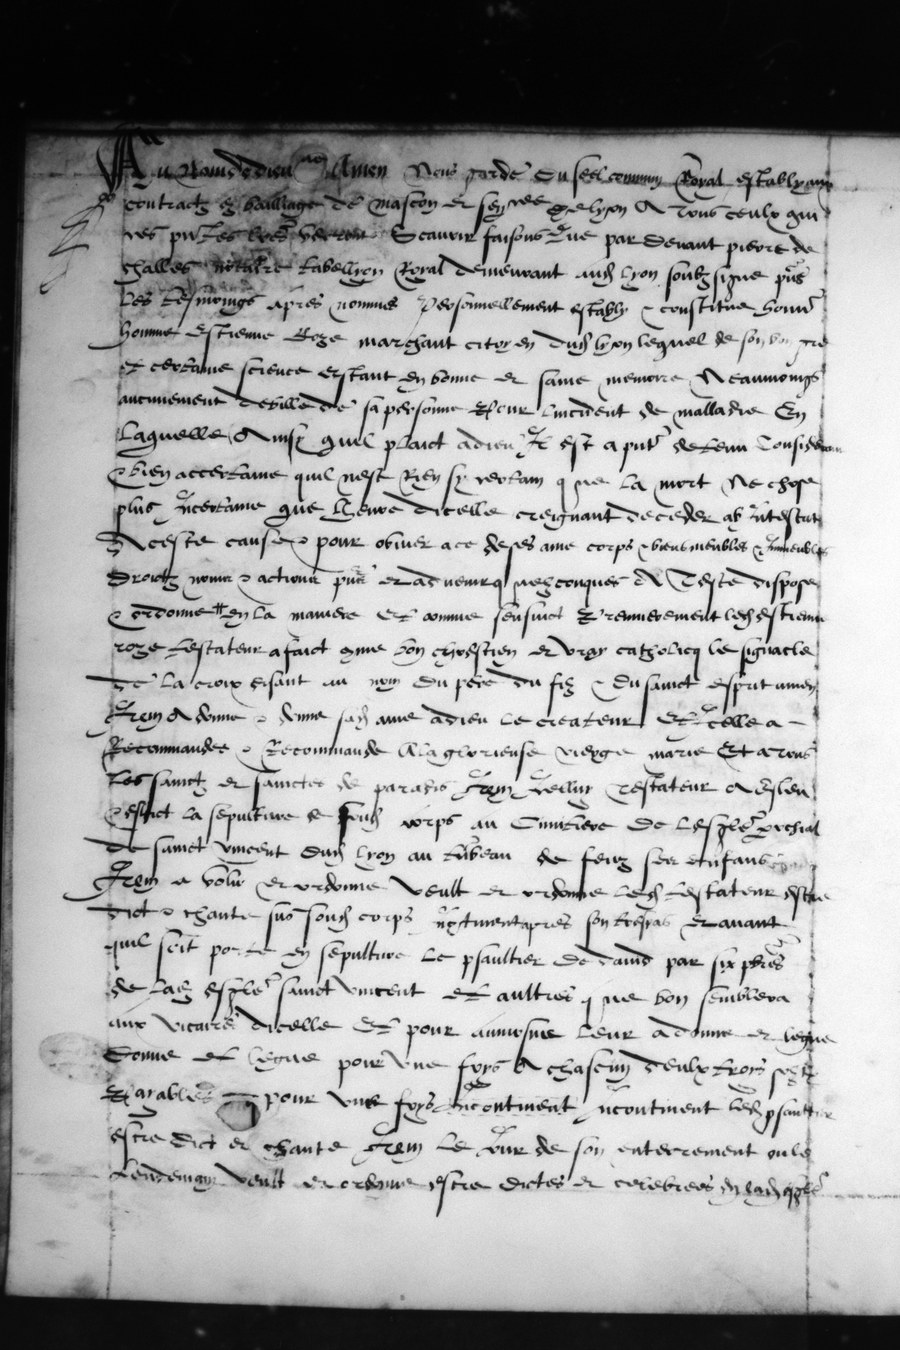 Au nom de dieu Amen Nous garde du seel commun Royal estably aux
contractz es bailliage de mascon et sen^cee de lyon A tous ceulx qui
ces p^ntes l^res verront Scavoir faisons Que par devant pierre de
challes notaire tabellion Royal demeurant aud lyon soubz signe p^ns
les tesmoings apres nommes personnellement estably & constitue honn^e
homme Estienne Roze marchant citoyen dud lyon lequel de son bon gre
et certaine science estant en bonne et saine memoire Neaumoings
aucunement debille de sa personne Pour lincident de malladie En
laquelle Ainsy quil plaict a dieu Il est a p^nt detenu Considerant
& bien acertaine quil nest Rien sy certain que la mort Ne chose
plus Incertaine que lheure dicelle creignant deceder ab Intestat
A ceste cause & pour obvier a ce de ses ame corps & biens meubles & Immeubles
droictz noms & actions p^ns et advenir quelzconques A Teste dispose
& ordonne En la maniere Et comme sensuict Premierement led Estienne
roze testateur a faict comme bon chrestien et vray catholicq le signacle
de la croix disant au nom du pere du filz & du sainct esprit amen
Item A donne & donne sad ame a dieu le createur Et Icelle a
Recommandee & Recommande A la glorieuse vierge marie Et a tous
les sainctz et sainctes de paradis Item Icelluy testateur A esleu
& eslict la sepulture de soud corps au Cimitiere de lesgle parochial
de sainct vincent dud lyon au tumbeau de feuz ses enfans
Item a volu et ordonne veult et ordonne led testateur estre
dict & chante sus soud corps Incontinent apres son trespas et avant
quil soit porte en sepulture le psaultier de david par six p^bres
de lad esgle sainct vincent Et aultres que bon semblera
aux vicaires dicelle Et pour aumosne leur a donne et legue
donne et legue pour une foys A chascun deulx troys solz
Payables pour une foys Incontinent Incontinent led psaultier
estre dict et chante Item le Jour de son enterrement ou le
lendemain veult et ordonne estre dictes et celebrees en lad esgle